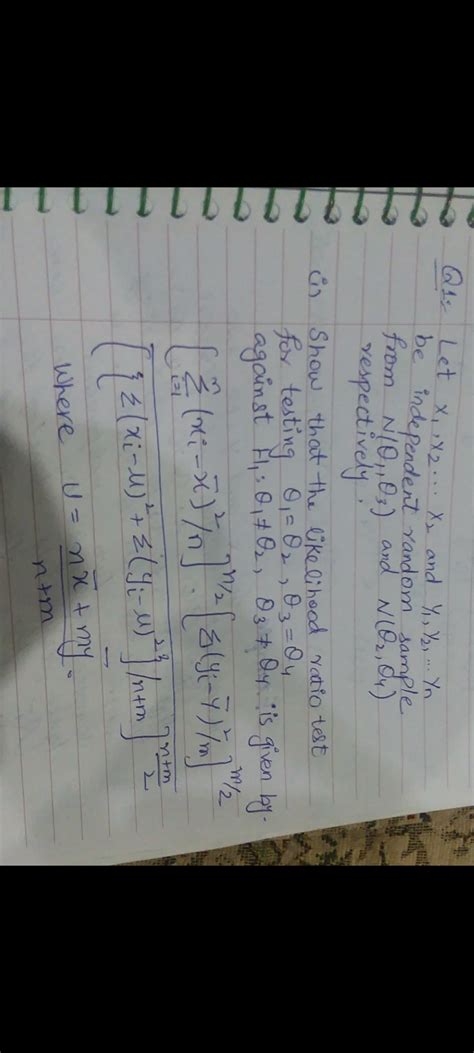 Q1: Let X1, X2 ... X2 and Y1, Y2, ... Yn
be independent random sample
from N(θ1, θ3) and N(θ2, θ4)
respectively.
(i) Show that the likelihood ratio test
for testing θ1 = θ2, θ3 = θ4
against H1: θ1 ≠ θ2, θ3 ≠ θ4 is given by.
[Σ_{i=1}^{n} (xi - x̄)²/n]^{n/2} . [Σ(yi - ȳ)²/m]^{m/2}
[{Σ(xi - u)² + Σ(yi - u)²}/n+m]^{(n+m)/2}
Where u = (nx̄ + mȳ)/(n+m) .